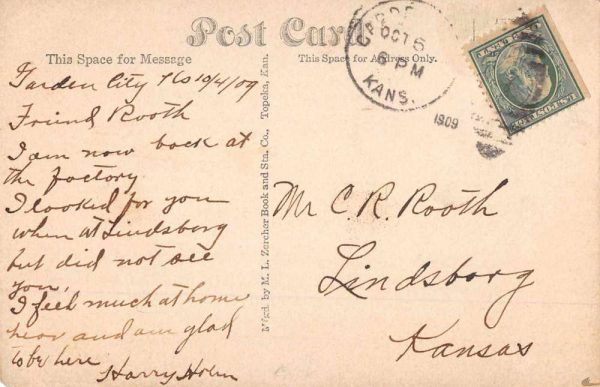 Post Card
This Space for Message
This Space for Address Only.
OCT 5
6 PM
KANS.
1909
Garden City Ks 10/4/09
Friend Rooth
I am now back at
the factory
I looked for you
when at Lindsborg
but did not see
you,
I feel much at home
hear and am glad
to be here
Harry Holm
M'f'd. by M. L. Zercher Book and Sta. Co., Topeka, Kan.
Mr C. R. Rooth
Lindsborg
Kansas